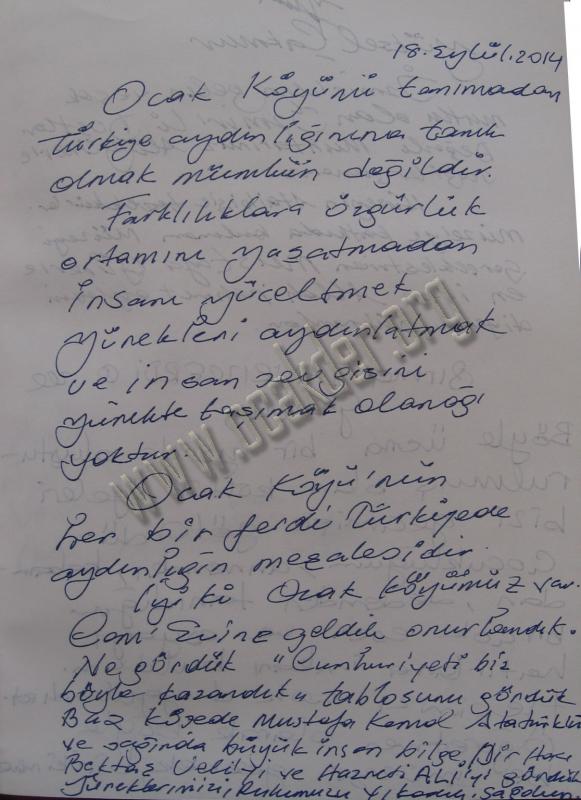 18.Eylül.2014
Ocak Köyünü tanımadan
Türkiye aydınlığınına tanık
olmak mümkün değildir.
Farklılıklara özgürlük
ortamını yaşatmadan
İnsanı yüceltmek
yürekleri aydınlatmak
ve insan sevgisini
yürekte taşımak olanağı
yoktur.
www.ocakder.org
Ocak Köyü'nün
her bir ferdi Türkiyede
aydınlığın meşalesidir.
İyi ki Ocak köyümüz var.
Cem Evine geldik onurlandık.
Ne gördük "Cumhuriyeti biz
böyle kazandık" tablosunu gördük
Baş köşede Mustafa Kemal Atatürkü
ve sağında büyük insan bilge, Pir Hacı
Bektaş Veliyi ve Hazreti Ali'yi gördük
Yüreklerimizi, Ruhumuzu